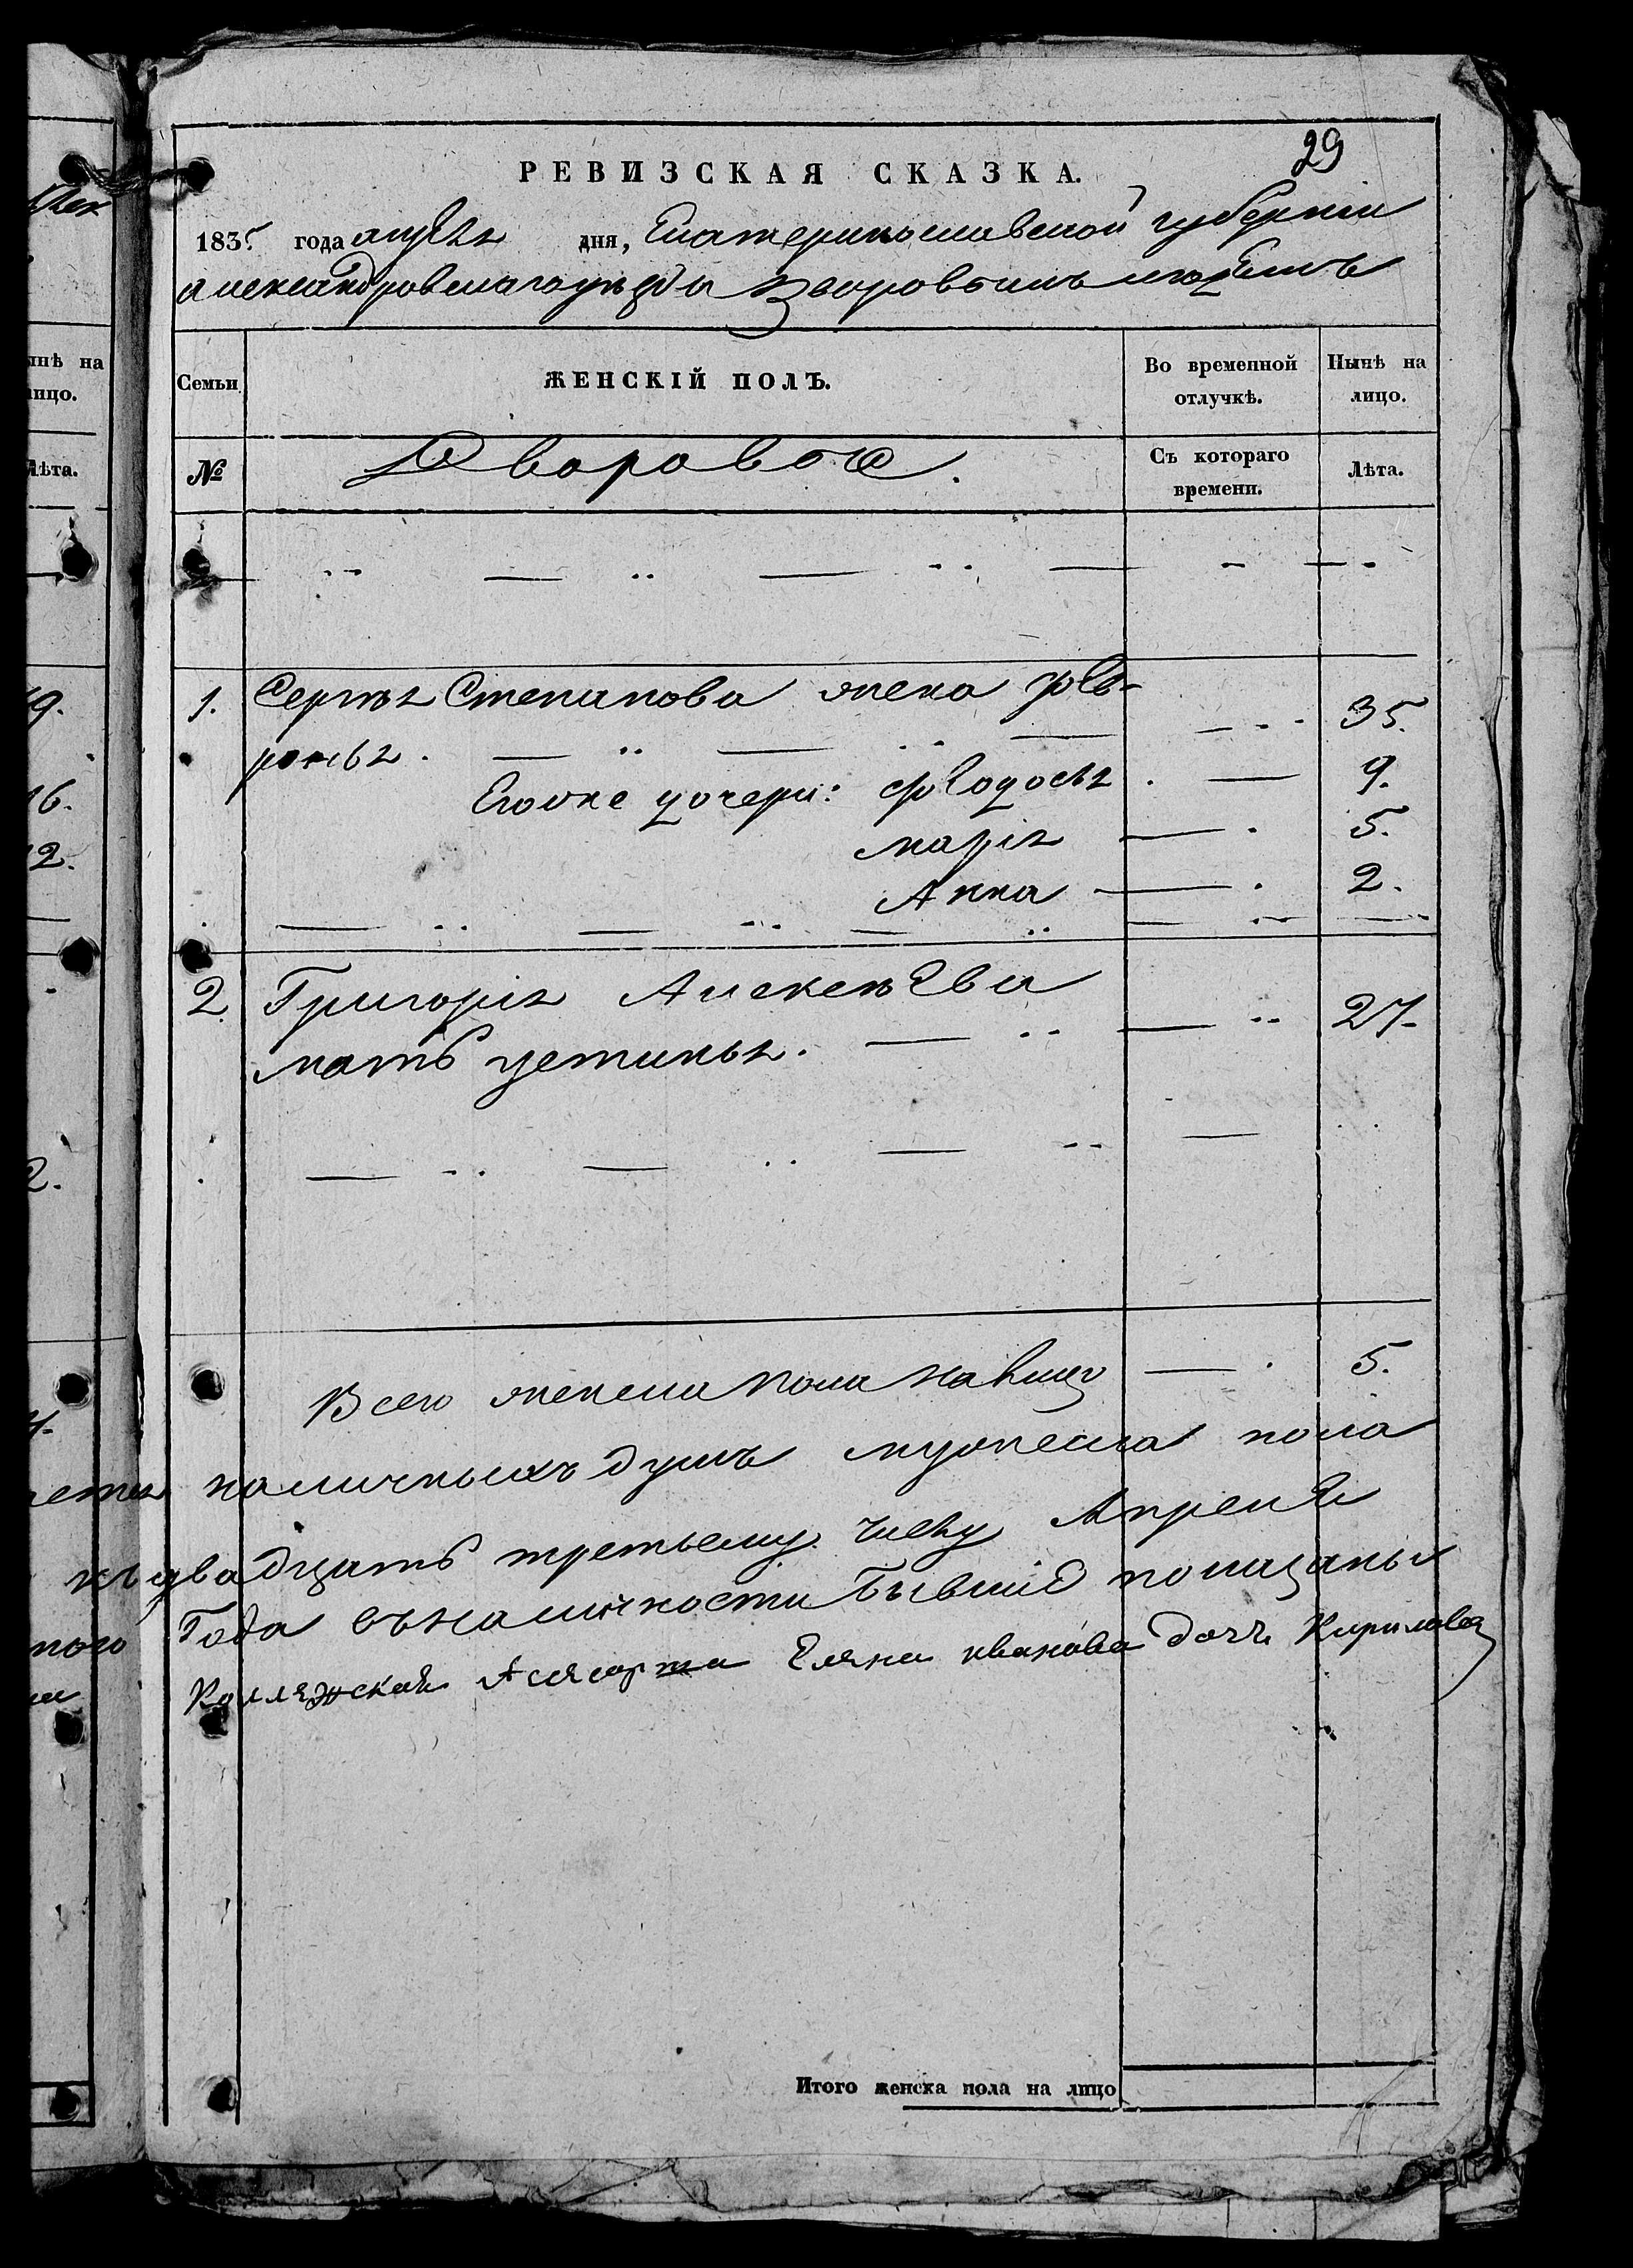 29
РЕВИЗСКАЯ СКАЗКА.
1835 года апреля дня, Екатеринославской губернии
александровскаго уезда дворовымъ людемъ
Семьи ЖЕНСКІЙ ПОЛЪ. Во временной отлучкѣ. Нынѣ на лицо.
№ Дворовые. Съ котораго времени. Лѣта.
1. Сергея Степанова жена фев- 35.
ронья.
Егоже дочери: феодосья 9.
марія 5.
Анна 2.
2. Григорія Алексеева 27.
мать устинья.
Всего женска пола на лицо 5.
наличныхъ душъ мужеска пола
къ двадцать третьему числу Апреля
Года въ наличности бывшие показаны
Колляжская Асясорша Еляна иванова дочь Кирилова
Итого женска пола на лицо
нынѣ на
лицо.
Лѣта.
19.
16.
12.
2.